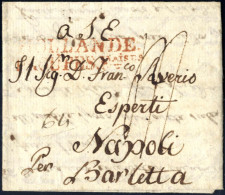 à S. E.
HOLLANDE
Il Sig.r D. Fran.co Saverio
Esperti
Napoli
Per
Barletta